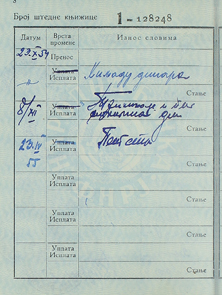 Број штедне књижице 1-128248
Датум Врста промене Износ словима
29.X.54 Пренос
Уплата
Исплата Хиљаду динара
Стање
8/XII Уплата
Исплата
Стање
23.IV Уплата
55 Исплата Пет ста
Стање
Уплата
Исплата
Стање
Уплата
Исплата
Стање
Уплата
Исплата
Стање